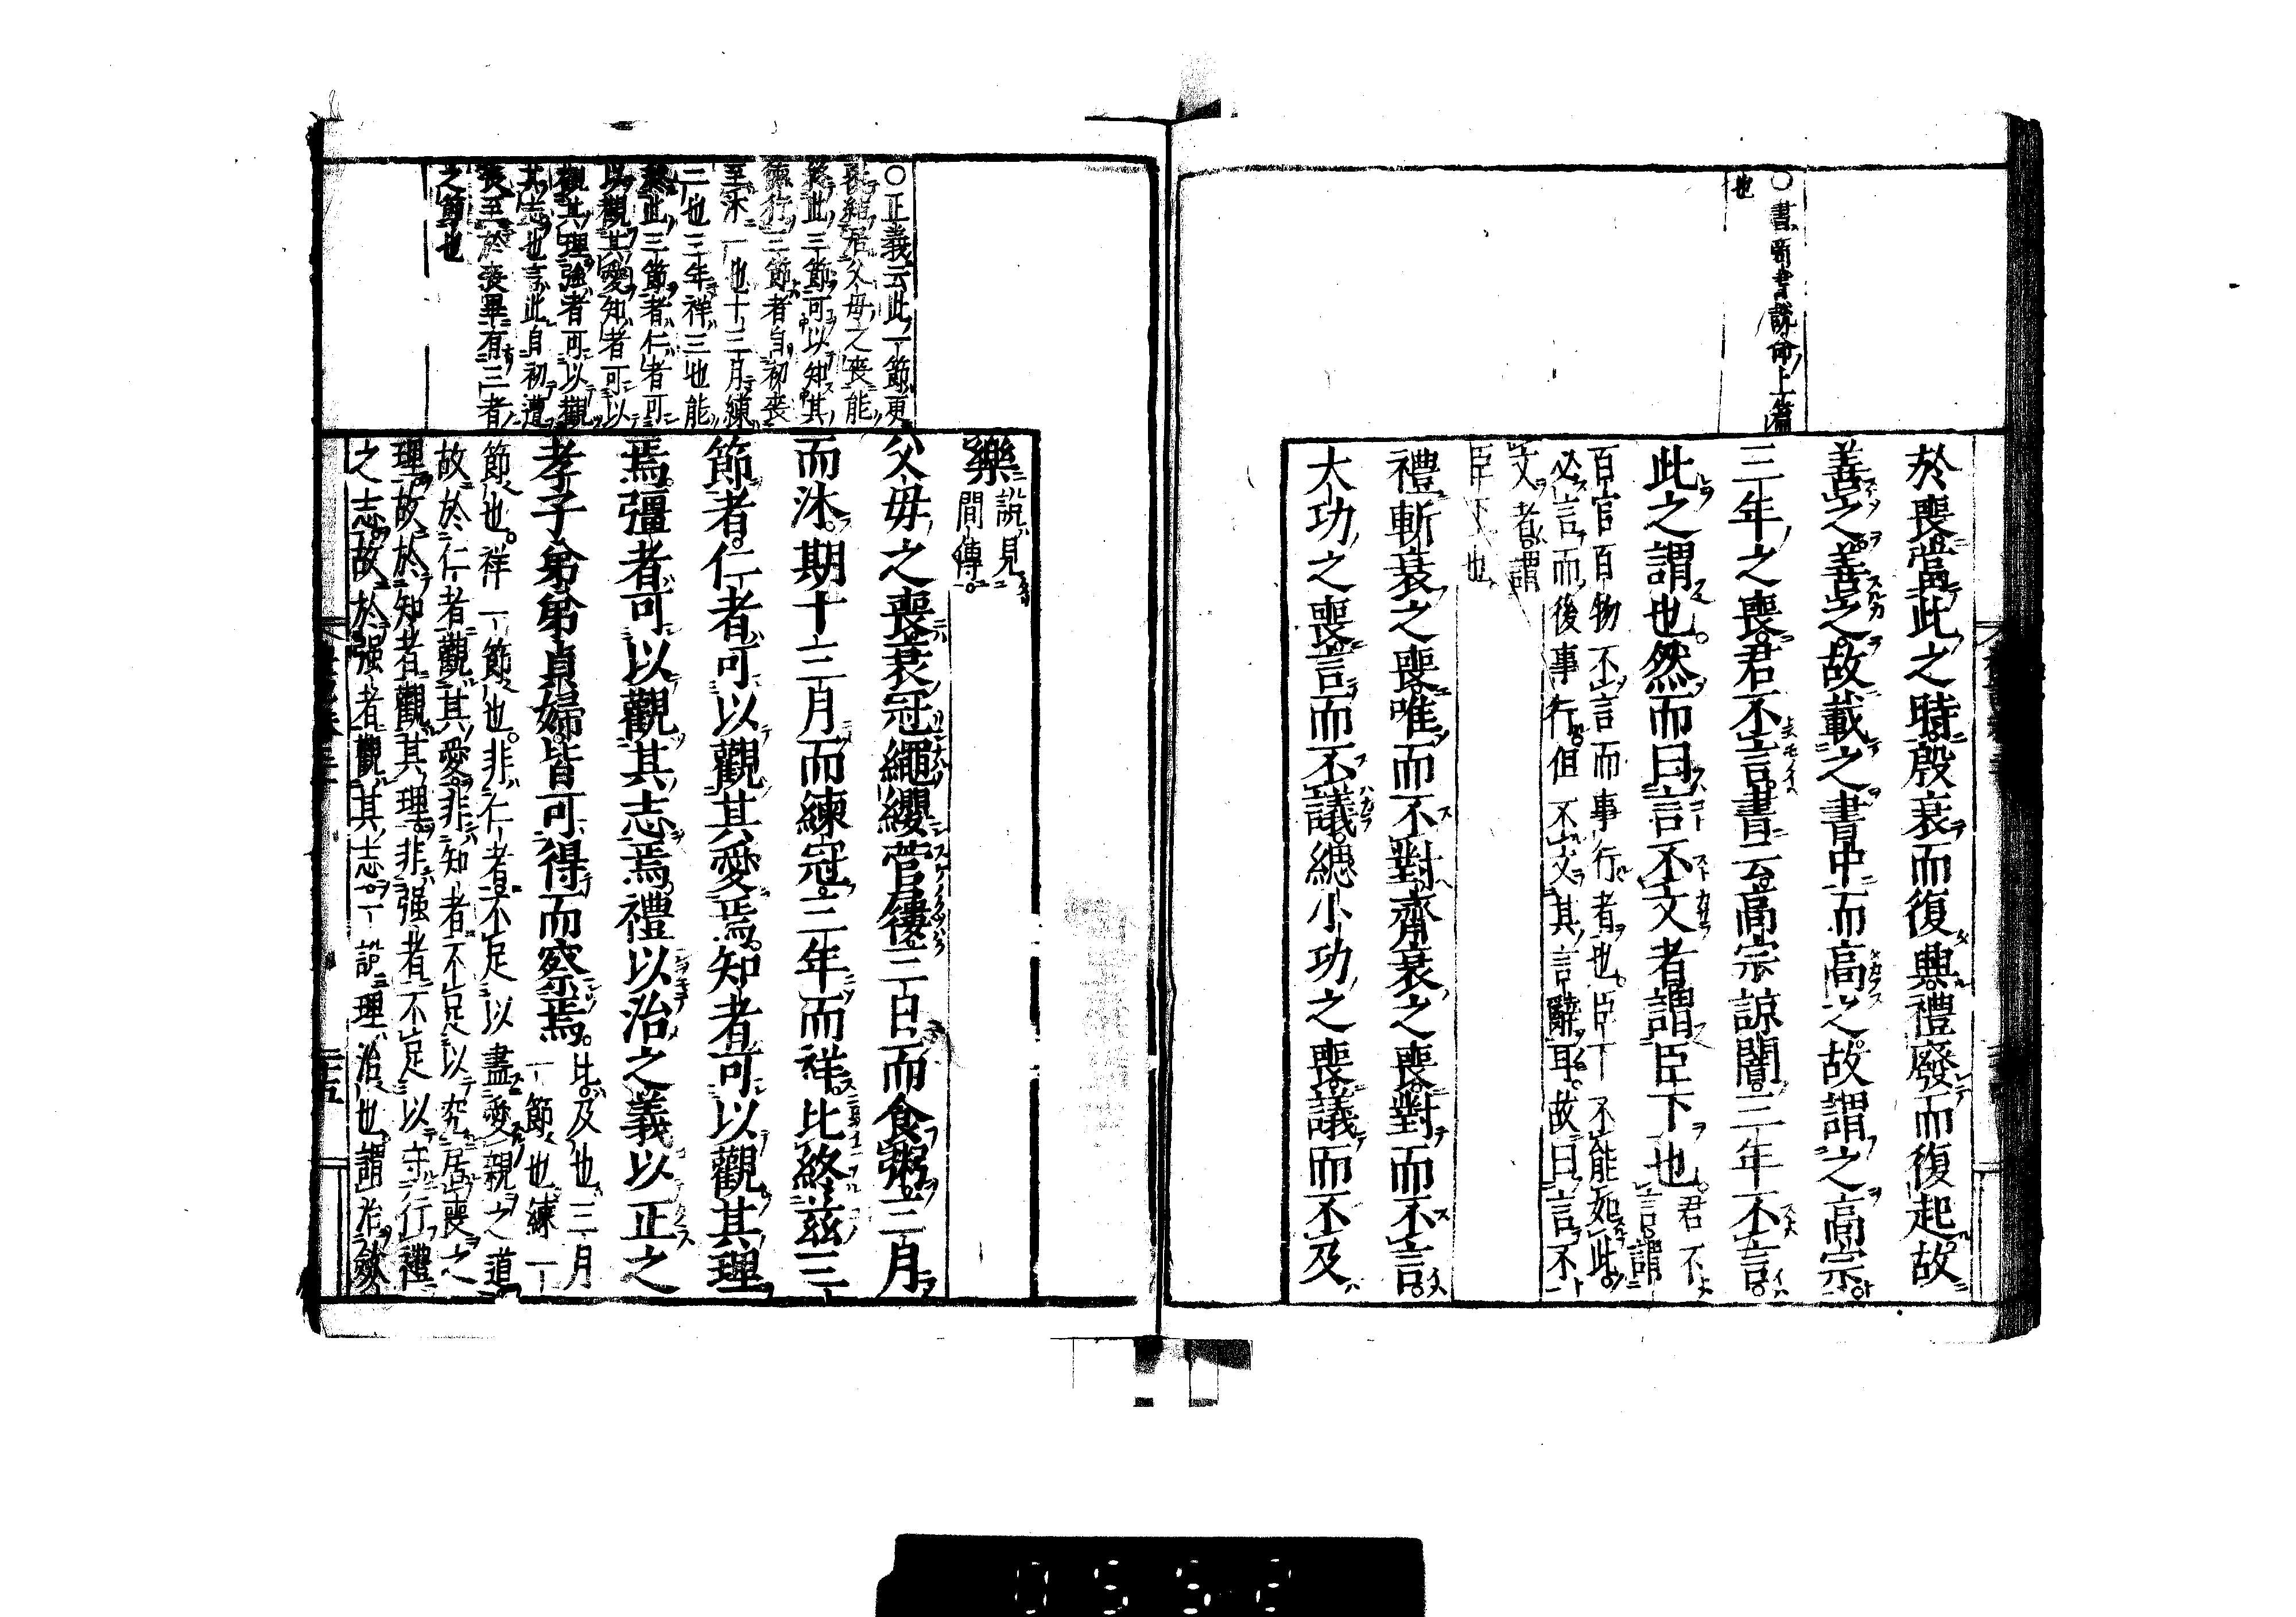 ○書商書說命上篇
也
於喪當此之時殷衰而復興禮廢而復起故
善之善之故載之書中而高之故謂之高宗
三年之喪君不言書云高宗諒闇三年不言
此之謂也然而曰言不文者謂臣下也
言謂
君不
百官百物不言而事行者也臣下不能如此
必言而後事行但不文其言辭耳故曰言不
文者謂
臣下也
禮斬衰之喪唯而不對齊衰之喪對而不言
大功之喪言而不議緦小功之喪議而不及
○正義云此一節更
喪結居父母之喪能
終此三節可以知其
德行三節者自初喪
至沐一也十三月練
二也三年祥三也能
終此三節者仁者可
以觀其愛知者可以
觀其理強者可以觀
其志也言此自初遭
喪至於喪畢有三者
之節也
樂
說見
間傳
父母之喪衰冠繩纓菅屨三日而食粥三月
而沐期十三月而練冠三年而祥比終茲三
節者仁者可以觀其愛焉知者可以觀其理
焉彊者可以觀其志焉禮以治之義以正之
孝子弟弟貞婦皆可得而察焉
比及也三月
一節也練一
節也祥一節也非仁者不足以盡愛親之道
故於仁者觀其愛非知者不足以究居喪之
理故於知者觀其理非强者不足以守行禮
之志故於强者觀其志一說理治也謂治斂
二五
0552